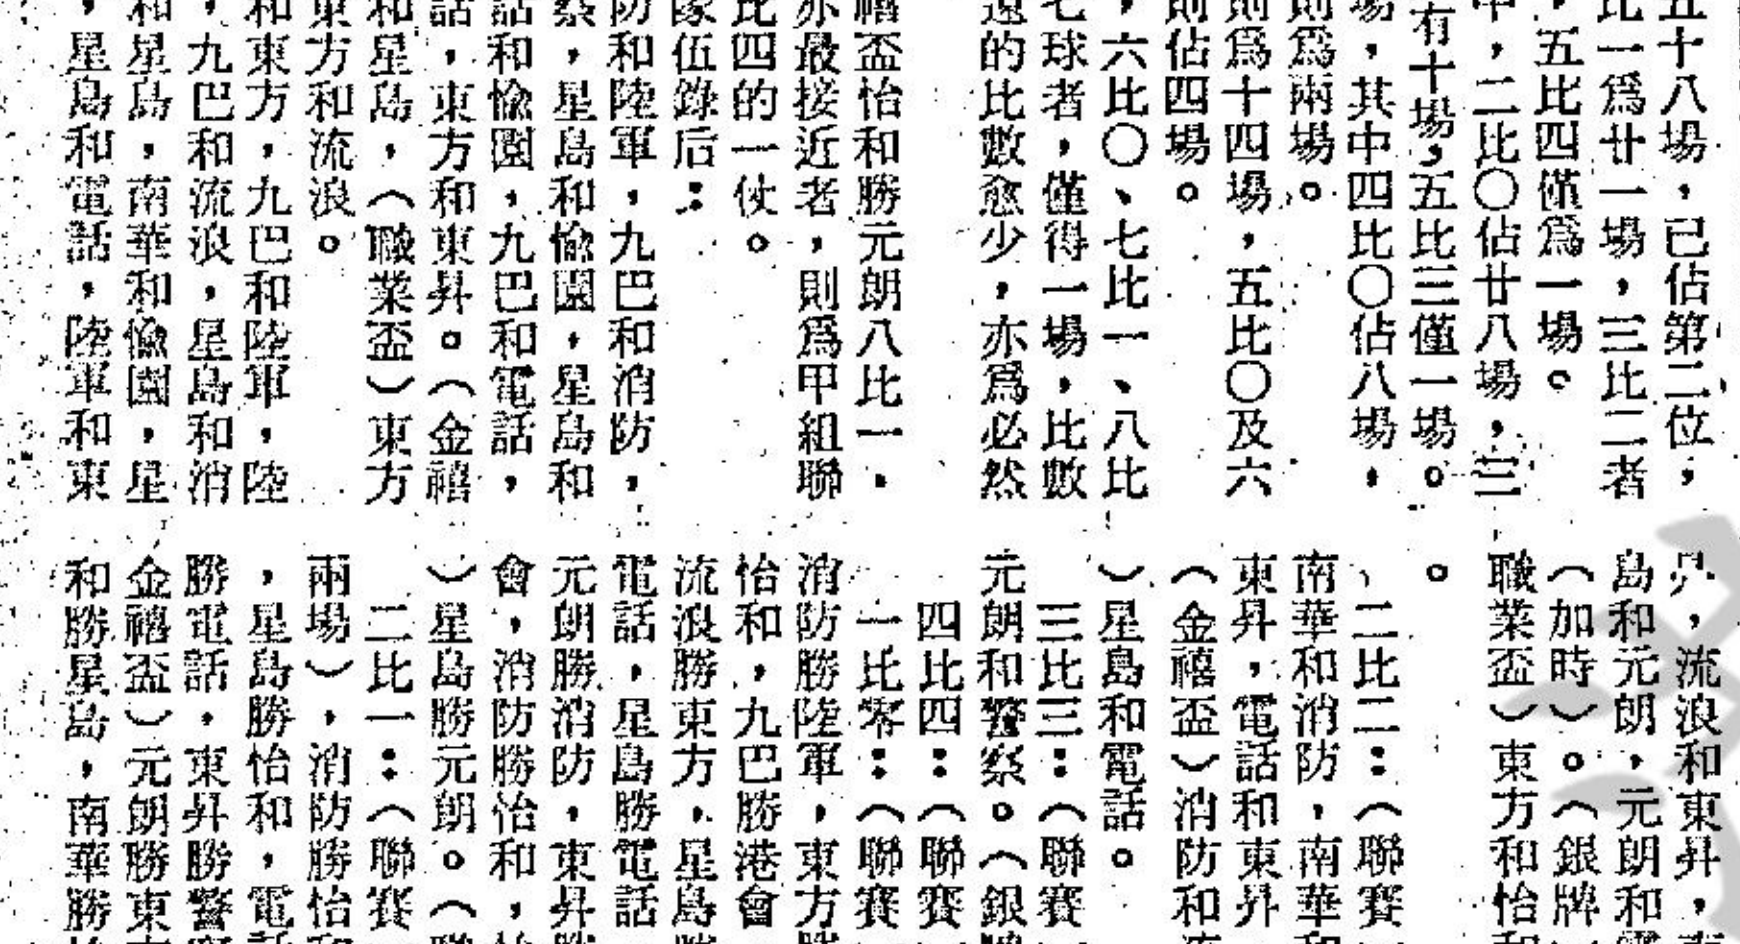 五十八場，已佔第二位，
比一爲廿一場，三比二者
，五比四僅爲一場。
中，二比〇佔廿八場，三
有十場，五比三僅一場。
場，其中四比〇佔八場，
則爲兩場。
則爲十四場，五比〇及六
則佔四場。
，六比〇、七比一、八比
七球者，僅得一場，比數
遠的比數愈少，亦爲必然
禧盃怡和勝元朗八比一，
亦最接近者，則爲甲組聯
比四的一仗。
隊伍錄后：
防和陸軍，九巴和消防，
察，星島和愉園，星島和
話和愉園，九巴和電話，
話，東方和東昇。（金禧
和星島，（職業盃）東方
東方和流浪。
和東方，九巴和陸軍，陸
，九巴和流浪，星島和消
和星島，南華和愉園，星
，星島和電話，陸軍和東
昇，流浪和東昇，
島和元朗，元朗和
（加時）。（銀牌
職業盃）東方和怡
。
二比二：（聯賽
南華和消防，南華
東昇，電話和東昇
（金禧盃）消防和
）星島和電話。
三比三：（聯賽
元朗和警察。（銀
四比四：（聯賽
一比零：（聯賽
消防勝陸軍，東方
怡和，九巴勝港會
流浪勝東方，星島
電話，星島勝電話
元朗勝消防，東昇
會，消防勝怡和，
）星島勝元朗。（
二比一：（聯賽
兩場），消防勝怡
，星島勝怡和，電
勝電話，東昇勝警
金禧盃）元朗勝東
和勝星島，南華勝